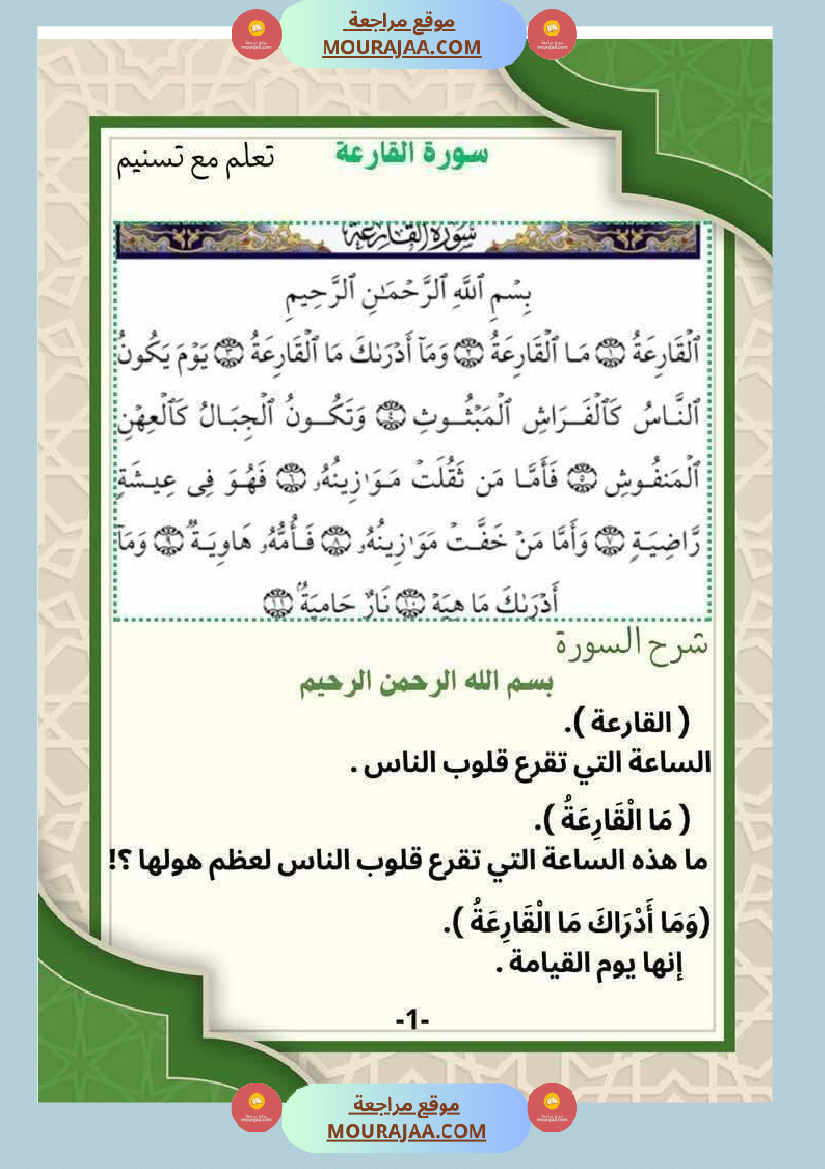 موقع مراجعة
MOURAJAA.COM
سورة القارعة
تعلم مع تسنيم
سُورَةُ القَارِعَةِ
بِسْمِ ٱللَّهِ ٱلرَّحْمَـٰنِ ٱلرَّحِيمِ
ٱلْقَارِعَةُ ١ مَا ٱلْقَارِعَةُ ٢ وَمَآ أَدْرَىٰكَ مَا ٱلْقَارِعَةُ ٣ يَوْمَ يَكُونُ
ٱلنَّاسُ كَٱلْفَرَاشِ ٱلْمَبْثُوثِ ٤ وَتَكُونُ ٱلْجِبَالُ كَٱلْعِهْنِ
ٱلْمَنفُوشِ ٥ فَأَمَّا مَن ثَقُلَتْ مَوَٰزِينُهُۥ ٦ فَهُوَ فِى عِيشَةٍ
رَّاضِيَةٍ ٧ وَأَمَّا مَنْ خَفَّتْ مَوَٰزِينُهُۥ ٨ فَأُمُّهُۥ هَاوِيَةٌ ٩ وَمَآ
أَدْرَىٰكَ مَا هِيَهْ ١٠ نَارٌ حَامِيَةٌۢ ١١
شرح السورة
بسم الله الرحمن الرحيم
( القارعة ).
الساعة التي تقرع قلوب الناس .
( مَا الْقَارِعَةُ ).
ما هذه الساعة التي تقرع قلوب الناس لعظم هولها ؟!
(وَمَا أَدْرَاكَ مَا الْقَارِعَةُ ).
إنها يوم القيامة .
-1-
موقع مراجعة
MOURAJAA.COM